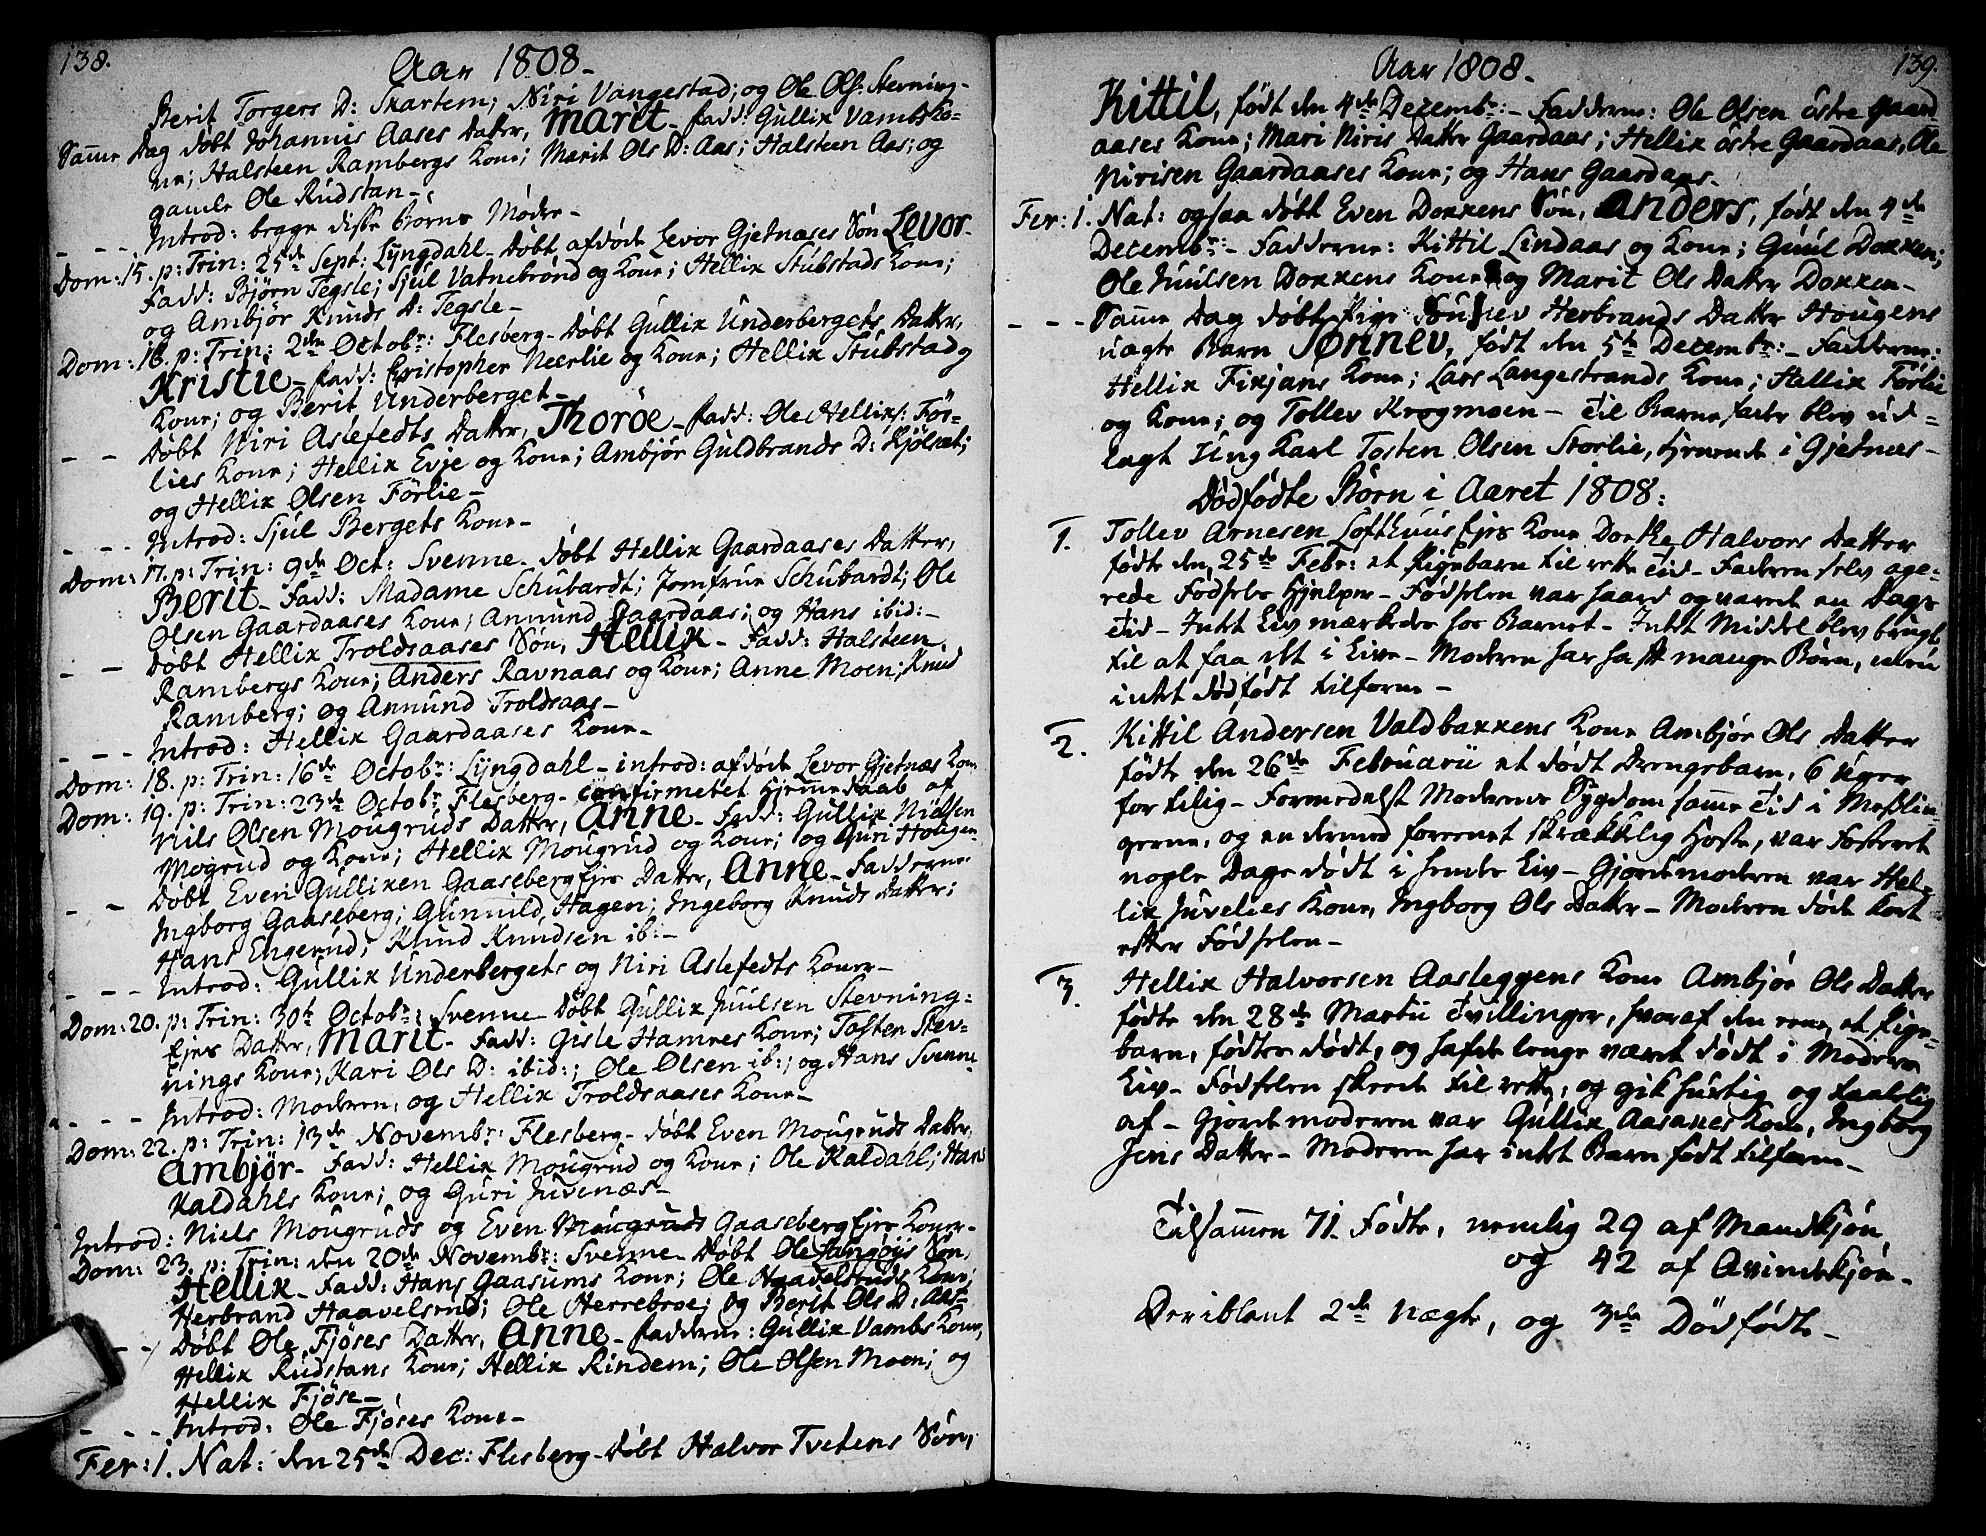 138.
Aar 1808.
Berit Torgers D: Skartem; Niri Vangestad; og Ole Ols: Stevning-
Samme Dag døbt Johannis Aases Datter, Marit- Fadd: Gullik Vambs Ko-
ne; Halsteen Rambergs Kone; Marit Ols D: Aas; Halsteen Aas; og
gamle Ole Rudstan-
- - - Introd: begge disse Børns Mødre-
Dom: 15. p: Trin: 25de Sept: Lyngdahl- Døbt afdøde Levor Gjetnæses Søn Levor-
Fadd: Bjørn Tegsle; Sjul Vatnebrønd og Kone; Hellik Stubstads Kone;
og Ambjør Knuds D: Tegsle-
Dom: 16. p: Trin: 2den Octobr: Flesberg- Døbt Gullik Underbergets Datter,
Kristie- Fadd: Christopher Neerlie og Kone; Hellik Stubstad og
Kone; og Berit Underberget-
- - Døbt Niri Aslefedts Datter, Thoröe- Fadd: Ole Helliks: För-
lies Kone; Hellik Evje og Kone; Ambjør Guldbrands D: Kjölsæt;
og Hellik Olsen Förlie-
- - - Introd: Sjul Bergets Kone-
Dom: 17. p: Trin: 9de Oct: Svenne- døbt Hellik Gaardaases Datter,
Berit- Fadd: Madame Schubardt; Jomfrue Schubardt; Ole
Olsen Gaardaases Kone; Annund Gaardaas; og Hans ibid:-
- - Døbt Hellik Troldsaases Søn, Hellik- Fadd: Halsteen
Rambergs Kone; Anders Ravnaas og Kone; Anne Moen; Knud
Ramberg; og Annund Troldsaas-
- - - Introd: Hellik Gaardaases Kone-
Dom: 18. p: Trin: 16de Octobr: Lyngdahl- introd: afdøde Levor Gjetnæs Kone
Dom: 19. p: Trin: 23de Octobr: Flesberg- confirmetet Hjemmedaab af
Nils Olsen Mougruds Datter, Anne- Fadd: Gullik Nielsen
Mogrud og Kone; Hellik Mougrud og Kone; og Guri Hougen-
- - Døbt Even Gulliken Gaasebergejes Datter, Anne- Fadderne
Ingborg Gaaseberg; Gunnild Hagen; Ingeborg Knuds Datter;
Hans Engerud; Knud Knudsen ib:-
- - - Introd: Gullik Underbergets og Niri Aslefedts Koner-
Dom: 20. p: Trin: 30te Octobr: Svenne- Døbt Gullik Juulsen Stevning-
Ejes Datter, Marit- Fadd: Gisle Hamres Kone; Tosten Stev-
nings Kone; Kari Ols D: ibid:; Ole Olsen ib:; og Hans Svenne
- - - Introd: Moderen, og Hellik Troldsaases Kone-
Dom: 22. p: Trin: 13de Novembr: Flesberg- døbt Even Mougruds Datter,
Ambjør- Fadd: Hellik Mougrud og Kone; Ole Kaldahl; Hans
Kaldahls Kone; og Guri Juvenæs-
Introd: Niels Mougruds og Even Gaasebergejes Koner-
Dom: 23. p: Trin: den 20de Novembr: Svenne- Døbt Ole Søn,
Hellik- Fadd: Hans Gaasums Kone; Ole Haavelsruds Kone;
Herbrand Haavelsrud; Ole Herrebroe; og Berit Ols D: Aas-
- - Døbt Ole Fjöses Datter, Anne- Fadderne: Gullik Vambs Kone,
Hellik Rudstans Kone; Hellik Rindem; Ole Olsen Moen; og
Hellik Fjöse-
- - - Introd: Ole Fjöses Kone-
Fer: 1. Nat: den 25de Dec: Flesberg- Døbt Halvor Tvetens Søn,
139.
Aar 1808.
Kittil, født den 4de Decembr:- Fadderne: Ole Olsen østre Gaard-
aases Kone; Mari Niris Datter Gaardaas; Hellik østre Gaardaas, Ole
Nirisen Gaardaases Kone; og Hans Gaardaas-
Fer: 1. Nat: ogsaa døbt Even Dokkens Søn, Anders, født den 4de
Decembr:- Fadderne: Kittil Lindaas og Kone; Guul Dokken;
Ole Juulsen Dokkens Kone og Marit Ols Datter Dokken-
- - - Samme Dag døbt Pige Herbrands Datter Hougens
uægte Barn Sønnev, født den 5te Decembr:- Fadderne:
Hellik Fikjans Kone; Lars Langestrands Kone; Hellik Förlie
og Kone; og Tollev Krogmoen- Til Barnefader blev ud-
lagt Ung Karl Tosten Olsen Storlie, tjenende i Gjetnes-
Dødfødte Børn i Aaret 1808:
1. Tollev Arnesen Lofthuusejes Kone Dorthe Halvors Datter
fødte den 25de Febr: et Pigebarn til rette Tid- Faderen selv age-
rede Fødsels Hjelper- Fødselen var haard og varet en Dags
Tid- Intet Liv mærkedes hos Barnet- Intet Middel blev brugt
til at faa det i Live- Moderen har haft mange Børn, men
intet dødfødt tilforn-
2. Kittil Andersen Valdbakkens Kone Ambjør Ols Datter
fødte den 26de Februarii et dødt Drengebarn, 6 Uger
for tilig- Formedelst Moderens Sygdom samme Tid i Meslin-
gerne, og en dermed forenet skrækkelig Hoste, var Fosteret
nogle Dage dødt i hendes Liv- Gjordemoderen var Hel-
lik Juvelies Kone, Ingborg Ols Datter- Moderen døde kort
efter Fødselen-
3. Hellik Halvorsen Aasleggens Kone Ambjør Ols Datter
fødte den 28de Martii Tvillinger, hvoraf den eene, et Pige-
barn, fødtes dødt, og hafde lenge været dødt i Moders
Liv- Fødselen skeede til rette, og gik hurtig og taalelig
af- Gjordemoderen var Gullik Kone, Ingborg
Jens Datter- Moderen har intet Barn født tilforn-
Tilsammen 71. Fødte, nemlig 29 af Mandkjøn,
og 42 af Qvindekjøn-
Deriblant 2de uægte, og 3de Dödfødte-